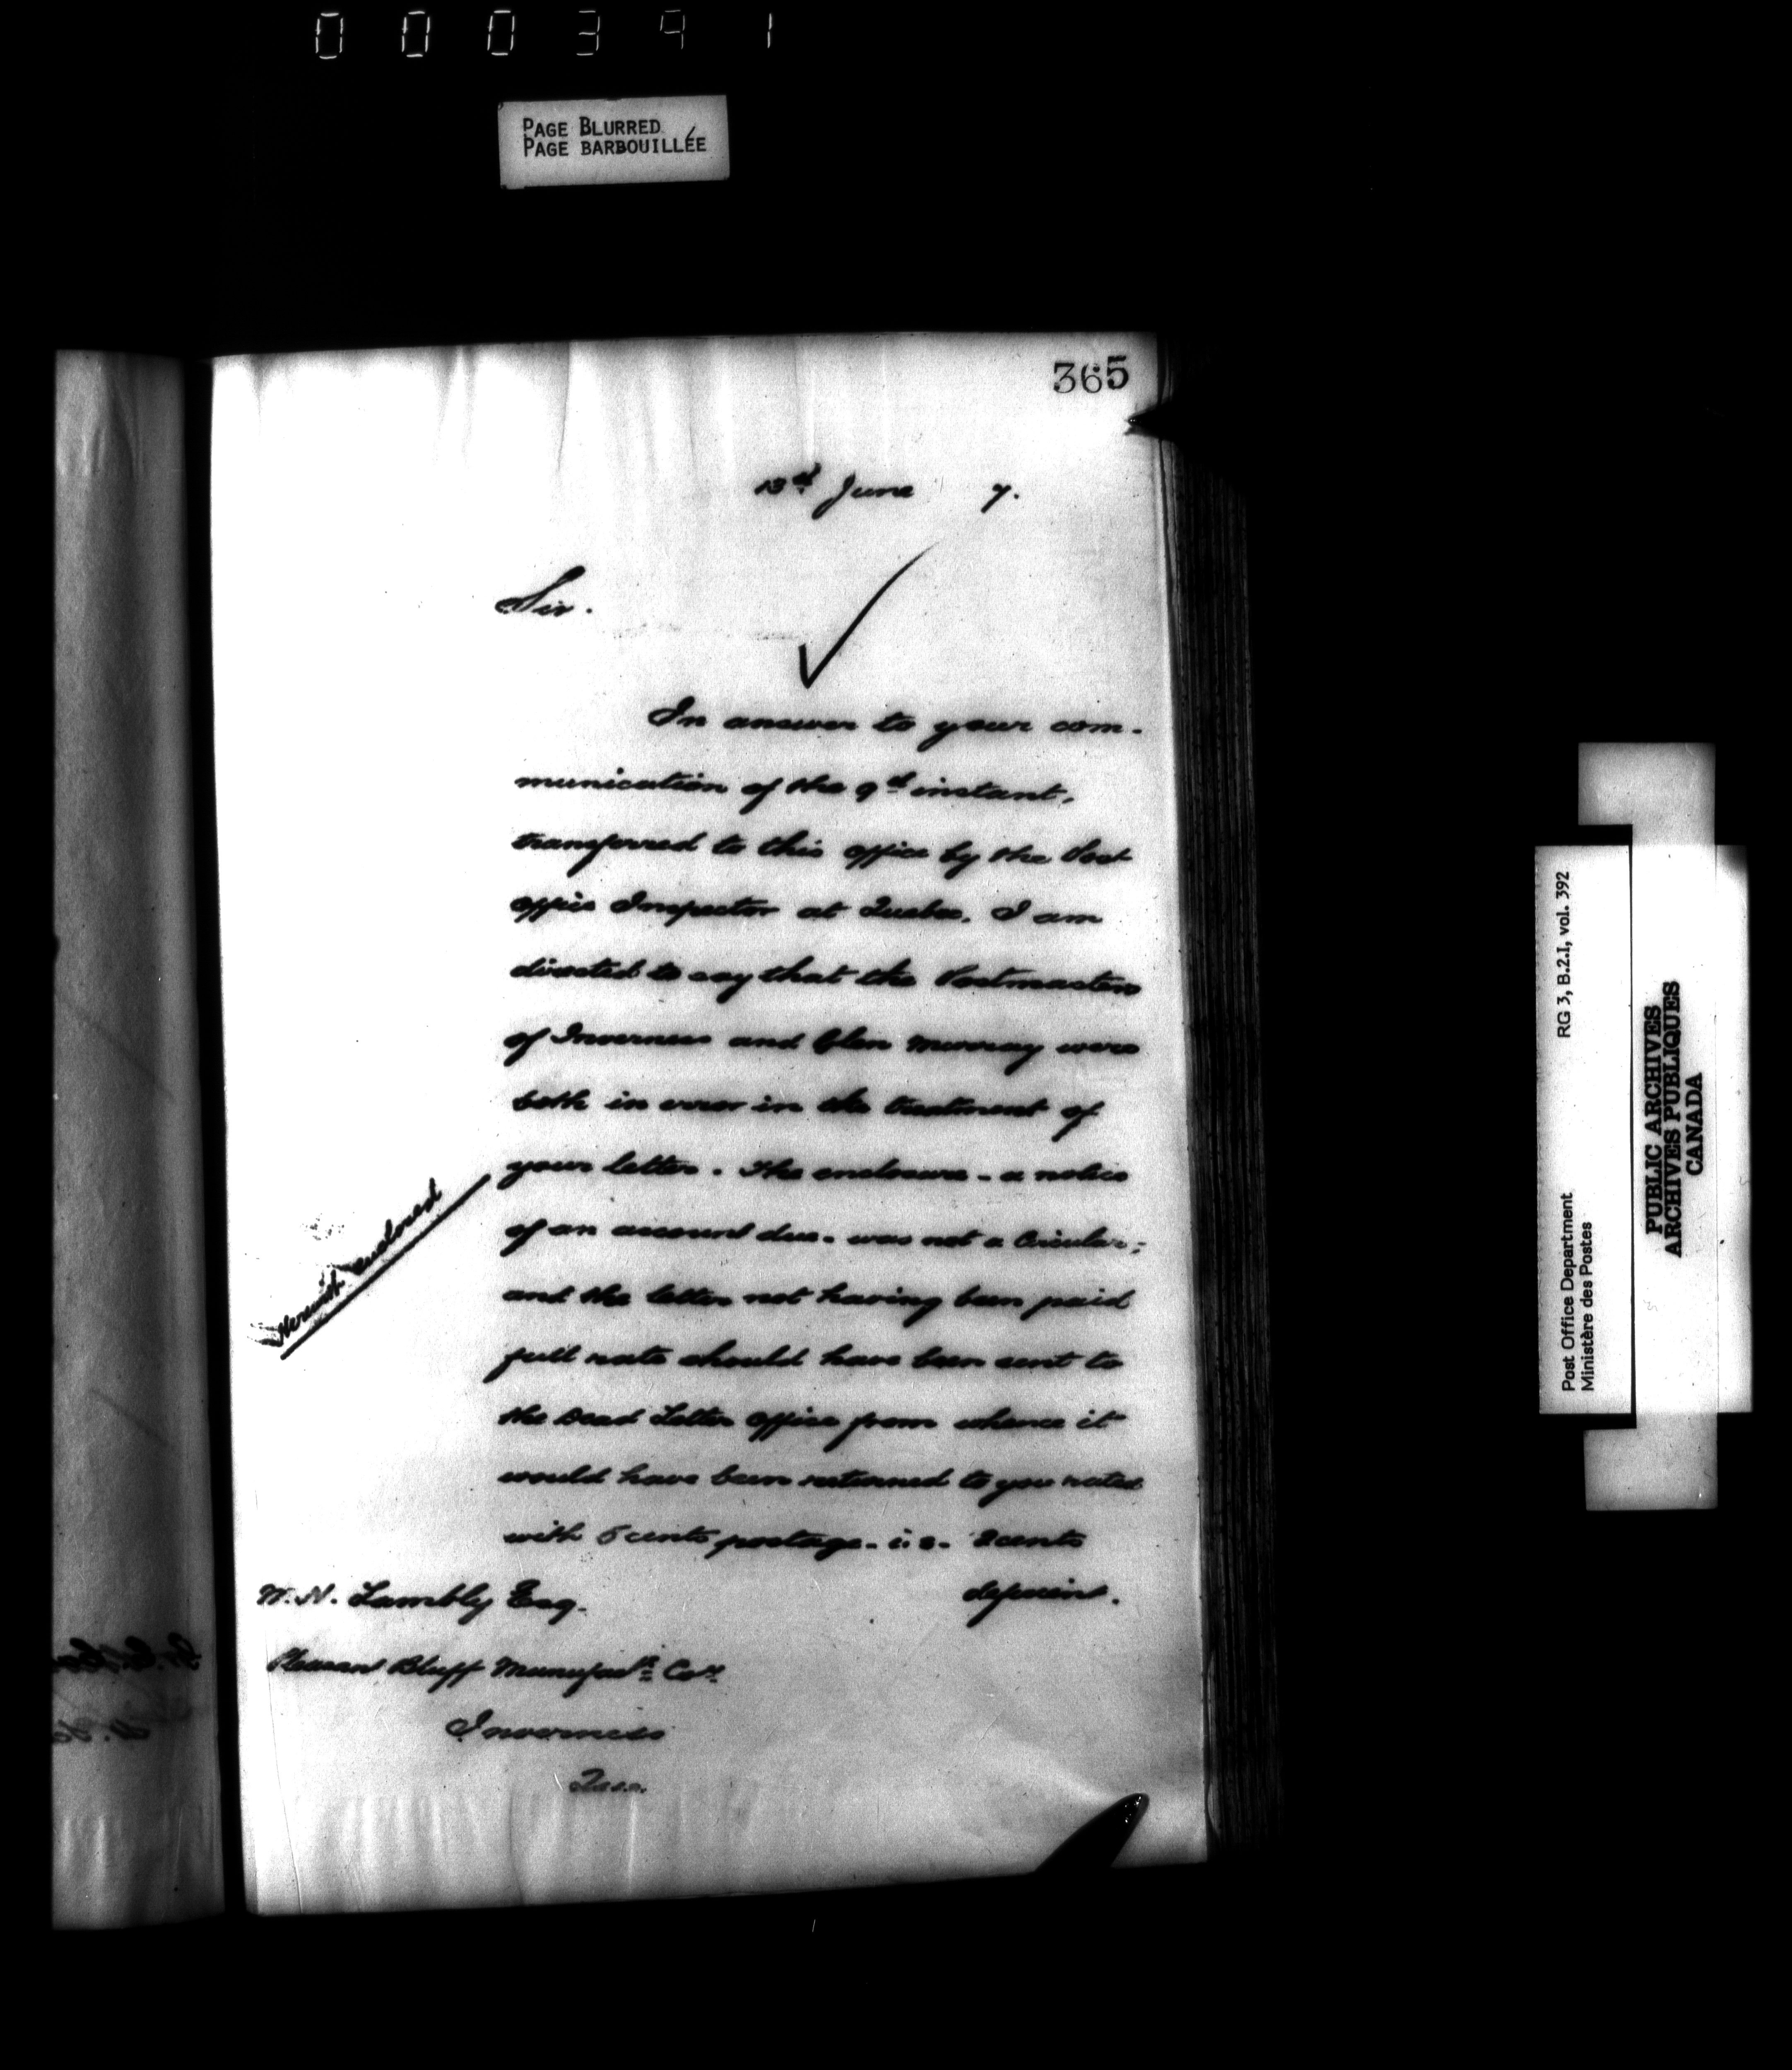 000391
PAGE BLURRED
PAGE BARBOUILLÉE
365
13th June 7.
Sir.
In answer to your com-
munication of the 9th instant,
transferred to this office by the Post
Office Inspector at Quebec. I am
directed to say that the Postmasters
of Inverness and Glen Murray were
both in error in the treatment of
your letter. The enclosure - a notice
of an account due - was not a Circular;
and the letter not having been paid
full rate should have been sent to
the Dead Letter Office from whence it
would have been returned to you rated
with 5 cents postage - i.e. 2 cents
deficient.
Herewith enclosed
W. H. Lambly Esq.
Bluff Manufac
Inverness
Post Office Department
Ministère des Postes
RG 3, B.2.I, vol. 392
PUBLIC ARCHIVES
ARCHIVES PUBLIQUES
CANADA